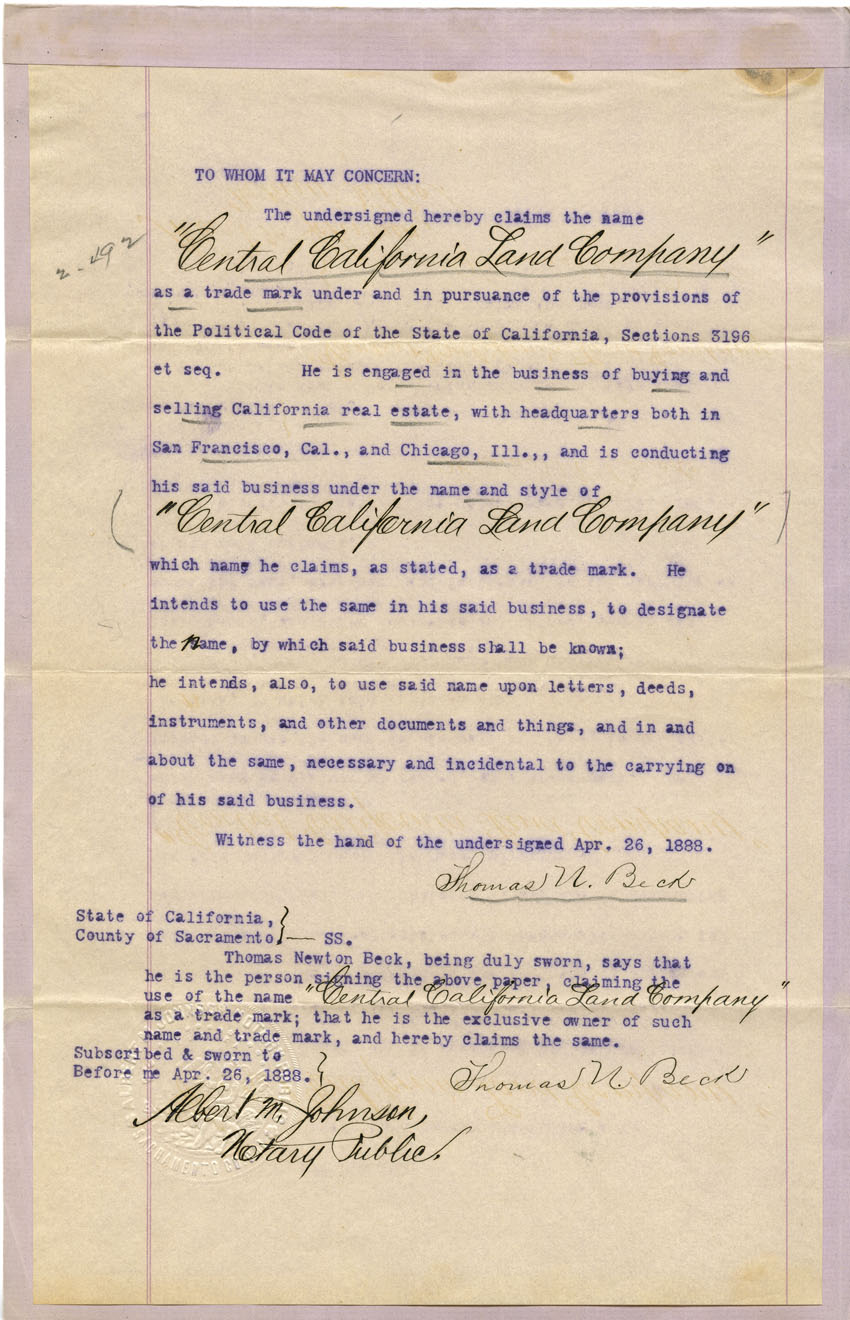 TO WHOM IT MAY CONCERN:
The undersigned hereby claims the name
"Central California Land Company"
as a trade mark under and in pursuance of the provisions of
the Political Code of the State of California, Sections 3196
et seq. He is engaged in the business of buying and
selling California real estate, with headquarters both in
San Francisco, Cal., and Chicago, Ill.,, and is conducting
his said business under the name and style of
"Central California Land Company"
which name he claims, as stated, as a trade mark. He
intends to use the same in his said business, to designate
the name, by which said business shall be known;
he intends, also, to use said name upon letters, deeds,
instruments, and other documents and things, and in and
about the same, necessary and incidental to the carrying on
of his said business.
Witness the hand of the undersigned Apr. 26, 1888.
Thomas N. Beck
State of California,
County of Sacramento. SS.
Thomas Newton Beck, being duly sworn, says that
he is the person signing the above paper, claiming the
use of the name "Central California Land Company"
as a trade mark; that he is the exclusive owner of such
name and trade mark, and hereby claims the same.
Subscribed & sworn to
Before me Apr. 26, 1888.
Thomas N. Beck
Albert M. Johnson,
Notary Public.